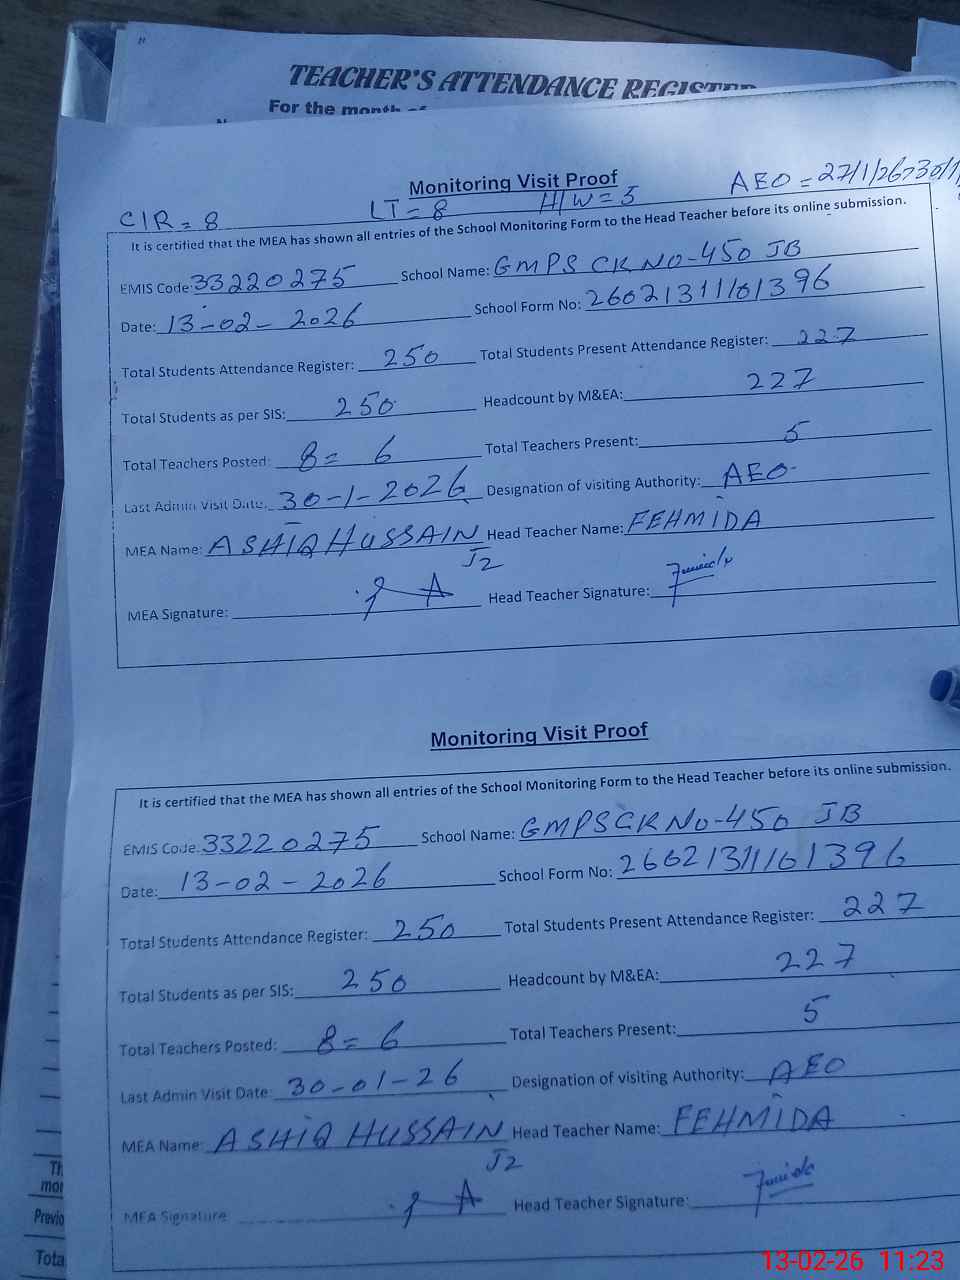 TEACHER'S ATTENDANCE REGISTER
For the month of
Monitoring Visit Proof
AEO = 27/1/26, 30/1/
CIR = 8 LT = 8 H/W = 5
It is certified that the MEA has shown all entries of the School Monitoring Form to the Head Teacher before its online submission.
EMIS Code: 33220275 School Name: GMPS CK NO-450 JB
Date: 13-02-2026 School Form No: 2602131101396
Total Students Attendance Register: 250 Total Students Present Attendance Register: 227
Total Students as per SIS: 250 Headcount by M&EA: 227
Total Teachers Posted: 8= 6 Total Teachers Present: 5
Last Admin Visit Date: 30-1-2026 Designation of visiting Authority: AEO
MEA Name: ASHIQ HUSSAIN Head Teacher Name: FEHMIDA
J2
MEA Signature: Head Teacher Signature:
Monitoring Visit Proof
It is certified that the MEA has shown all entries of the School Monitoring Form to the Head Teacher before its online submission.
EMIS Code: 33220275 School Name: GMPS CK NO-450 JB
Date: 13-02-2026 School Form No: 2602131101396
Total Students Attendance Register: 250 Total Students Present Attendance Register: 227
Total Students as per SIS: 250 Headcount by M&EA: 227
Total Teachers Posted: 8= 6 Total Teachers Present: 5
Last Admin Visit Date: 30-01-26 Designation of visiting Authority: AEO
MEA Name: ASHIQ HUSSAIN Head Teacher Name: FEHMIDA
J2
MEA Signature Head Teacher Signature:
Th
mon
Previo
Tota
13-02-26 11:23